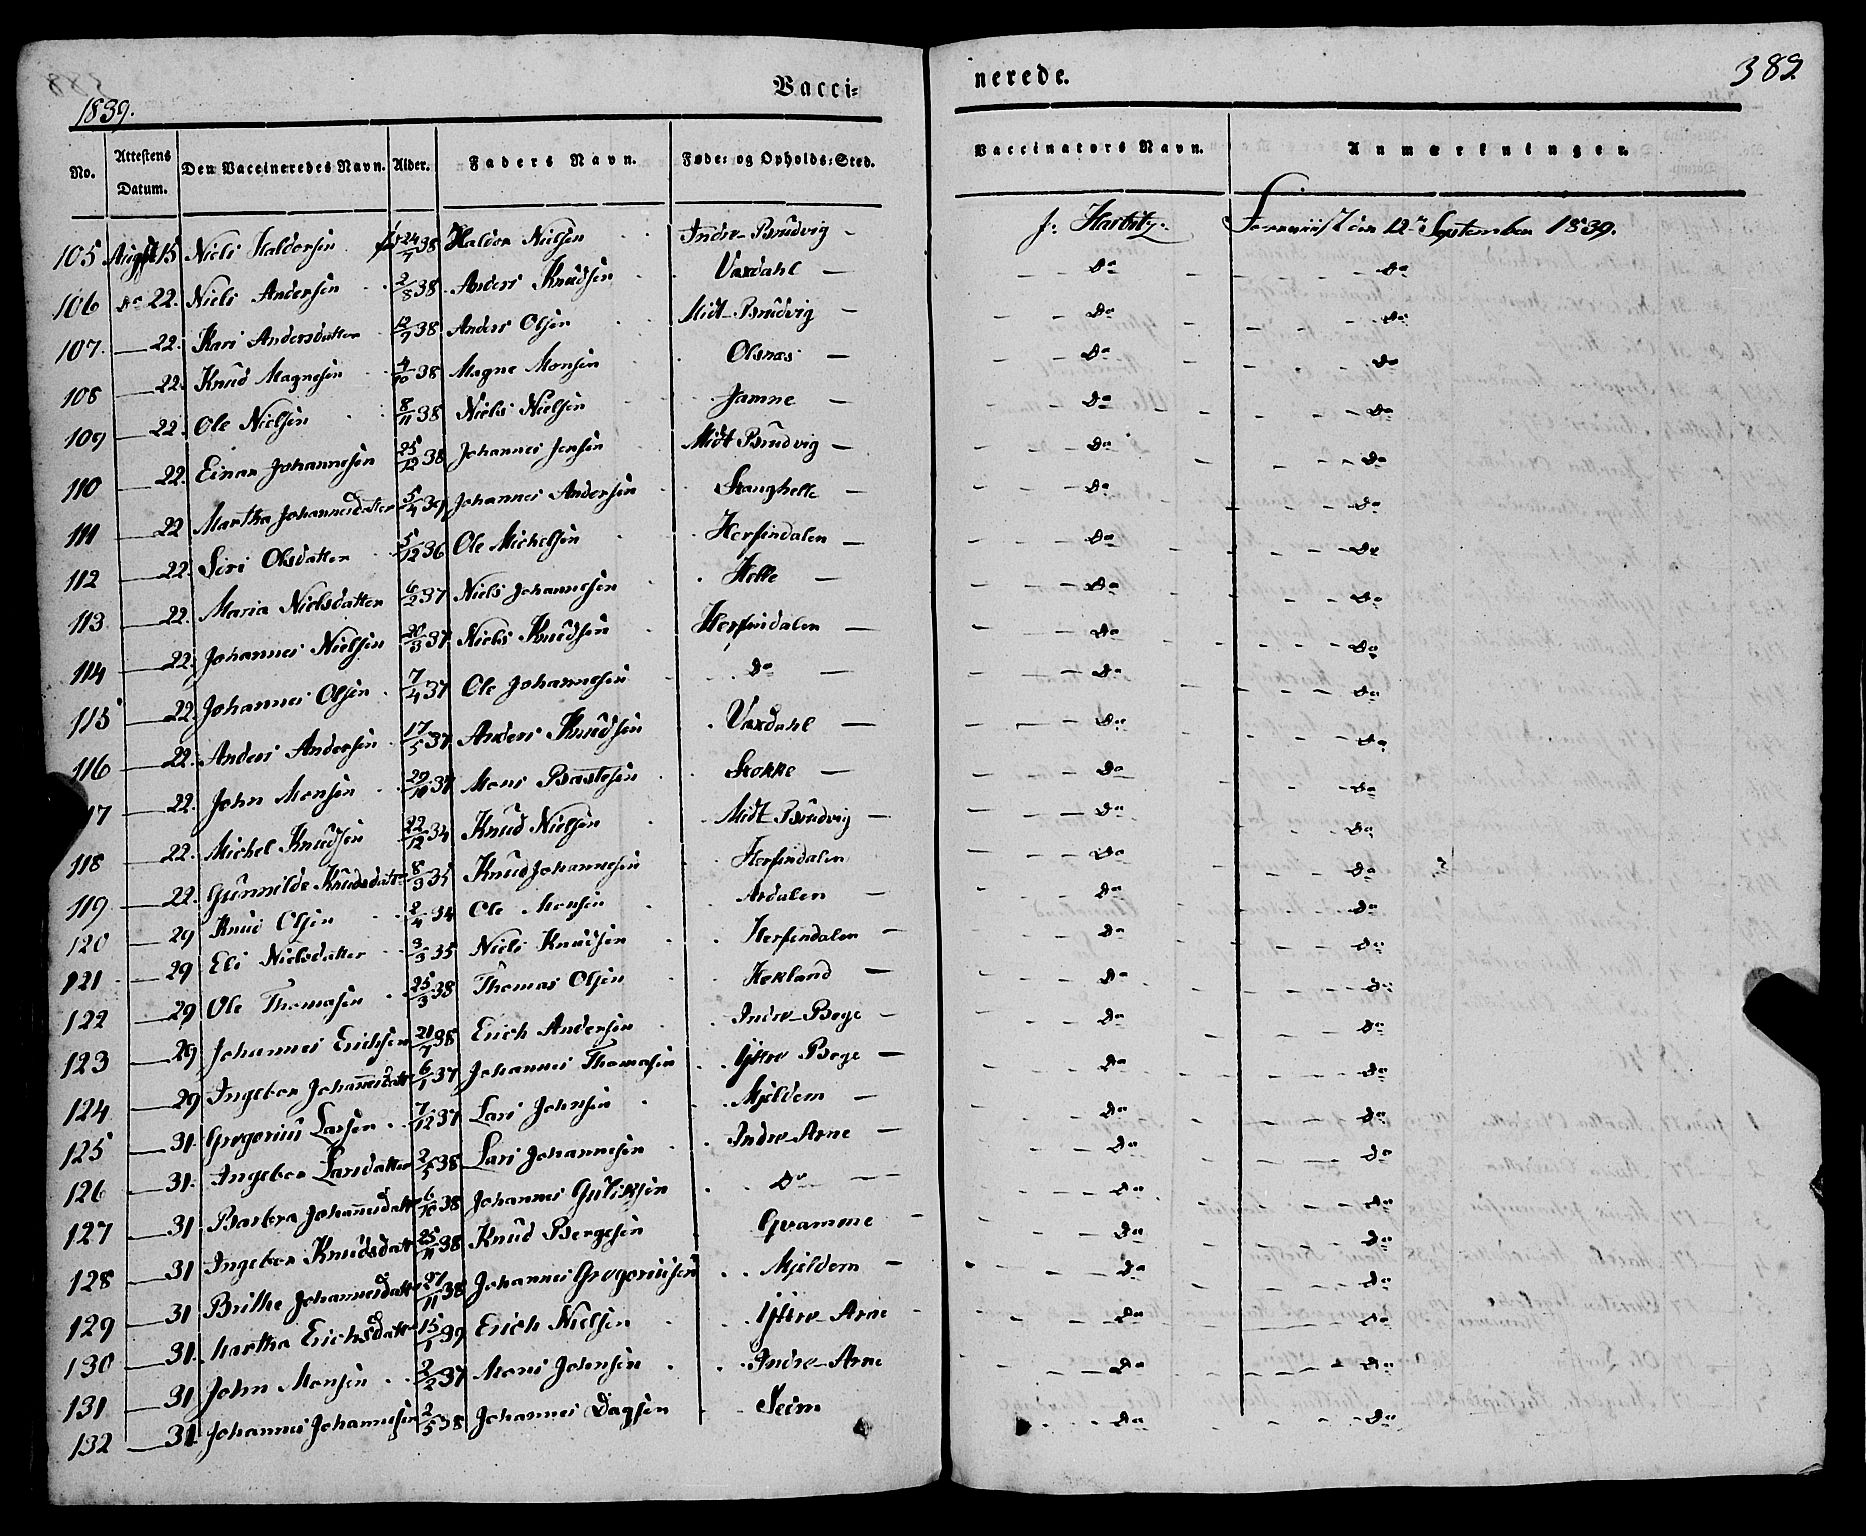 1839.
Vacci=
nerede.
382
No. Attestens Datum. Den Vaccineredes Navn. Alder. Faders Navn. Føde= og Opholds=Sted. Vaccinators Navn. Anmærkninger.
105 August 15 Niels Haldorsen 24/7 38 Haldor Nielsen Indre-Brudvig - J: Harbitz. Foreviist den 12te September 1839.
106 do 22. Niels Andersen 2/8 38. Anders Knudsen Vaxdahl - Do Do
107. 22. Kari Andersdatter 12/9 38. Anders Olsen Midt-Brudvig - Do Do
108 22. Knud Magnesen 4/10 38 Magne Monsen Olsnæs - Do Do
109 22. Ole Nielsen 8/11 38 Niels Nielsen Jamne - Do Do
110 22. Einar Johannesen 25/12 38 Johannes Jensen Midt Brudvig - Do Do
111 22 Martha Johannesdatter 5/4 39 Johannes Andersen Stanghelle - Do Do
112 22. Siri Olsdatter 5/12 36 Ole Michelsen Herfindalen - Do Do
113 22. Maria Nielsdatter 6/2 37 Niels Johannesen Helle - Do Do
114 22. Johannes Nielsen 20/3 37 Niels Knudsen Herfindalen - Do Do
115 22. Johannes Olsen 7/4 37 Ole Johannesen Do - Do Do
116 22. Anders Andersen 17/5 37 Anders Knudsen Vaxdahl - Do Do
117 22. John Monsen 29/10 37 Mons Bastesen Stokke - Do Do
118 22. Michel Knudsen 22/12 34 Knud Nielsen Midt-Brudvig - Do Do
119 22. Gunnilde Knudsdatter 8/3 35 Knud Johannesen Herfindalen Do Do
120 29 Knud Olsen 2/4 34 Ole Monsen Ardalen - Do Do
121 29 Eli Nielsdatter 3/3 35 Niels Knudsen Herfindalen - Do Do
122 29 Ole Thomasen 25/3 38 Thomas Olsen Hekland - Do Do
123 29 Johannes Erichsen 21/7 38 Erich Andersen Indre-Boge - Do Do
124 29 Ingebor Johannesdatt 6/1 37 Johannes Thomasen Ijttre Boge - Do Do
125 31. Gregorius Larsen 7/12 37 Lars Johnsen Mjeldem - Do Do
126 31. Ingebor Larsdatter 2/5 38 Lars Johannesen Indre-Arne - Do Do
127 31 Barbra Johannesdatt 6/10 38 Johannes Guliksen Do - Do Do
128 31 Ingebor Knudsdatt 25/11 38 Knud Bergesen Gvamme - Do Do
129 31 Brithe Johannesdatt 27/11 38 Johannes Gregoriusen Mjeldem - Do Do
130 31. Martha Erichsdatt 15/1 39 Erich Nielsen Ijttre Arne - Do Do
131 31 John Monsen 2/2 37 Mons Johnsen Indre-Arne Do Do
132 31. Johannes Johannesen 2/5 38 Johannes Dagsen Seim Do Do